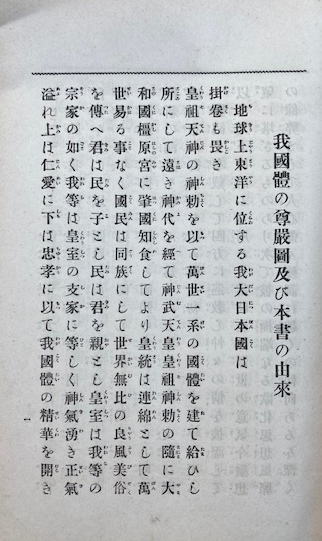 我國體の尊嚴圖及び本書の由來
地球上東洋に位する我大日本國は
掛卷も畏き
皇祖天神の神勅を以て萬世一系の國體を建て給ひし
所にして遠き神代を經て神武天皇皇祖神勅の隨に大
和國橿原宮に肇國知食してより皇統は連綿として萬
世易る事なく國民は同族にして世界無比の良風美俗
を傳へ君は民を子とし民は君を親とし皇室は我等の
宗家の如く我等は皇室の支家に等しく神氣湧き正氣
溢れ上は仁愛に下は忠孝に以て我國體の精華を開き
一